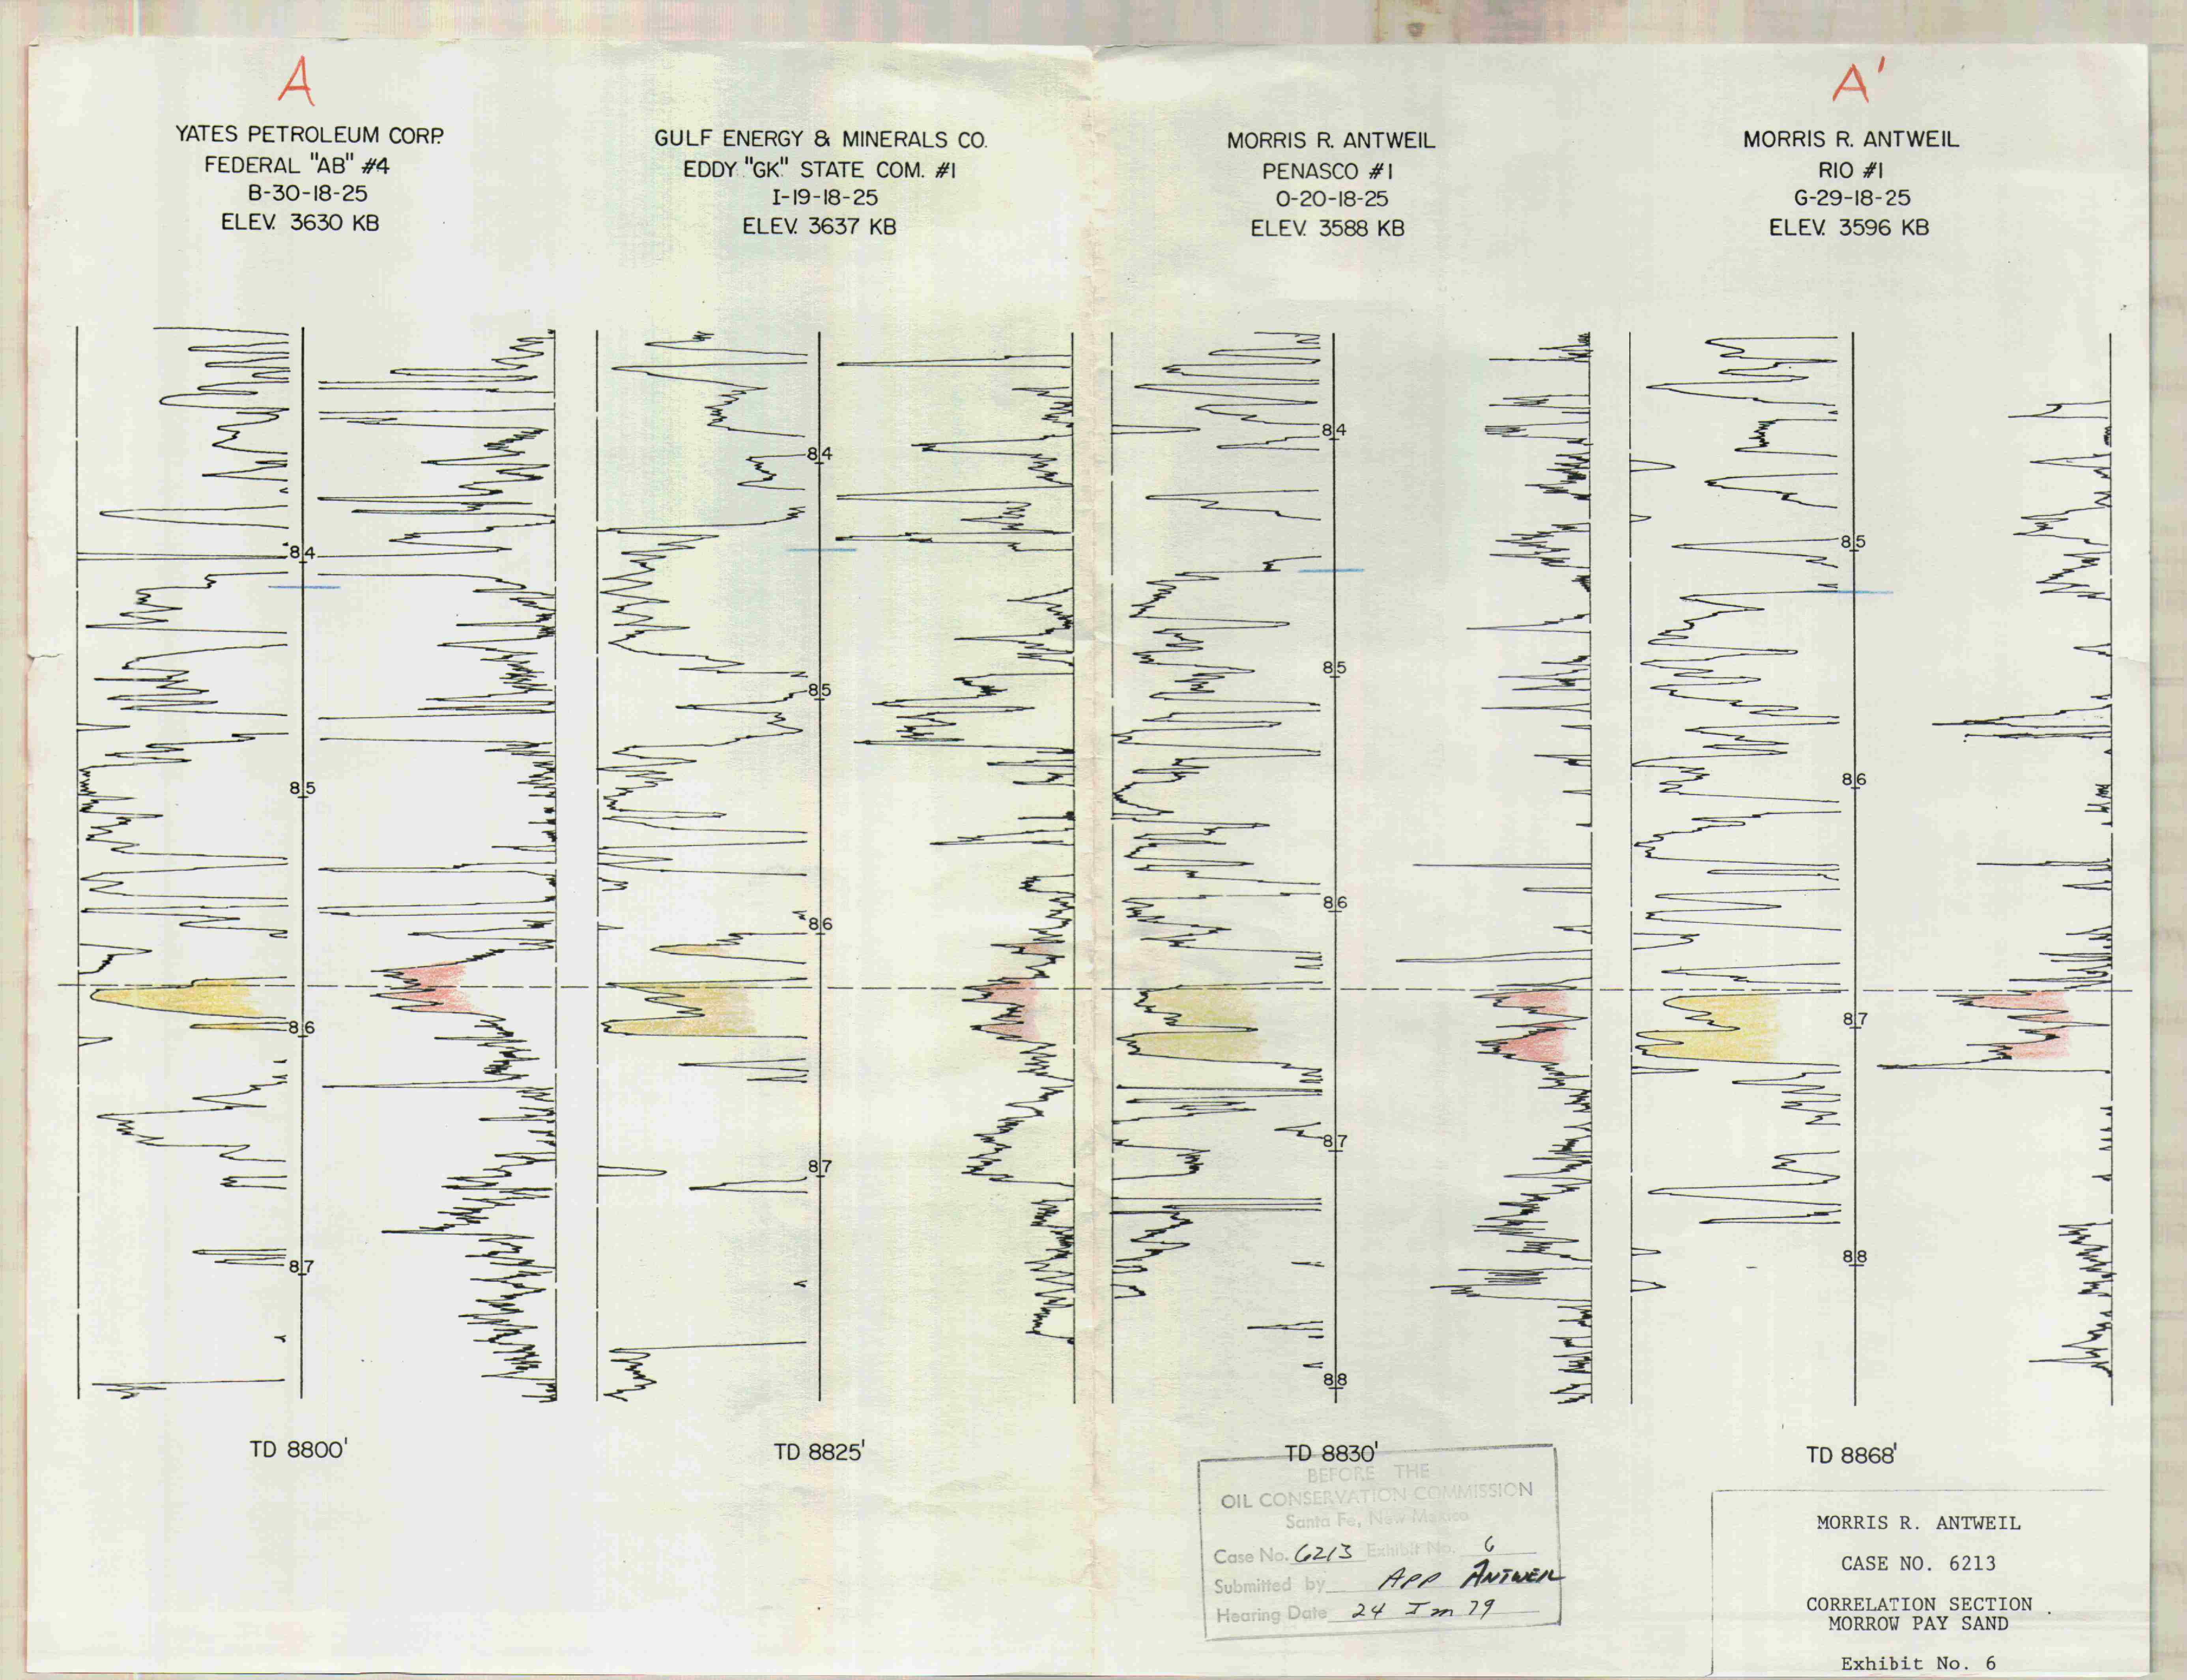 A
YATES PETROLEUM CORP.
FEDERAL "AB" #4
B-30-18-25
ELEV. 3630 KB
GULF ENERGY & MINERALS CO.
EDDY "GK" STATE COM. #1
I-19-18-25
ELEV. 3637 KB
MORRIS R. ANTWEIL
PENASCO #1
O-20-18-25
ELEV. 3588 KB
A'
MORRIS R. ANTWEIL
RIO #1
G-29-18-25
ELEV. 3596 KB
84
85
86
87
84
85
86
87
84
85
86
87
88
85
86
87
88
TD 8800'
TD 8825'
TD 8830'
TD 8868'
BEFORE THE
OIL CONSERVATION COMMISSION
Santa Fe, New Mexico
Case No. 6213 Exhibit No. 6
Submitted by APP ANTWEIL
Hearing Date 24 Jan 79
MORRIS R. ANTWEIL
CASE NO. 6213
CORRELATION SECTION
MORROW PAY SAND
Exhibit No. 6